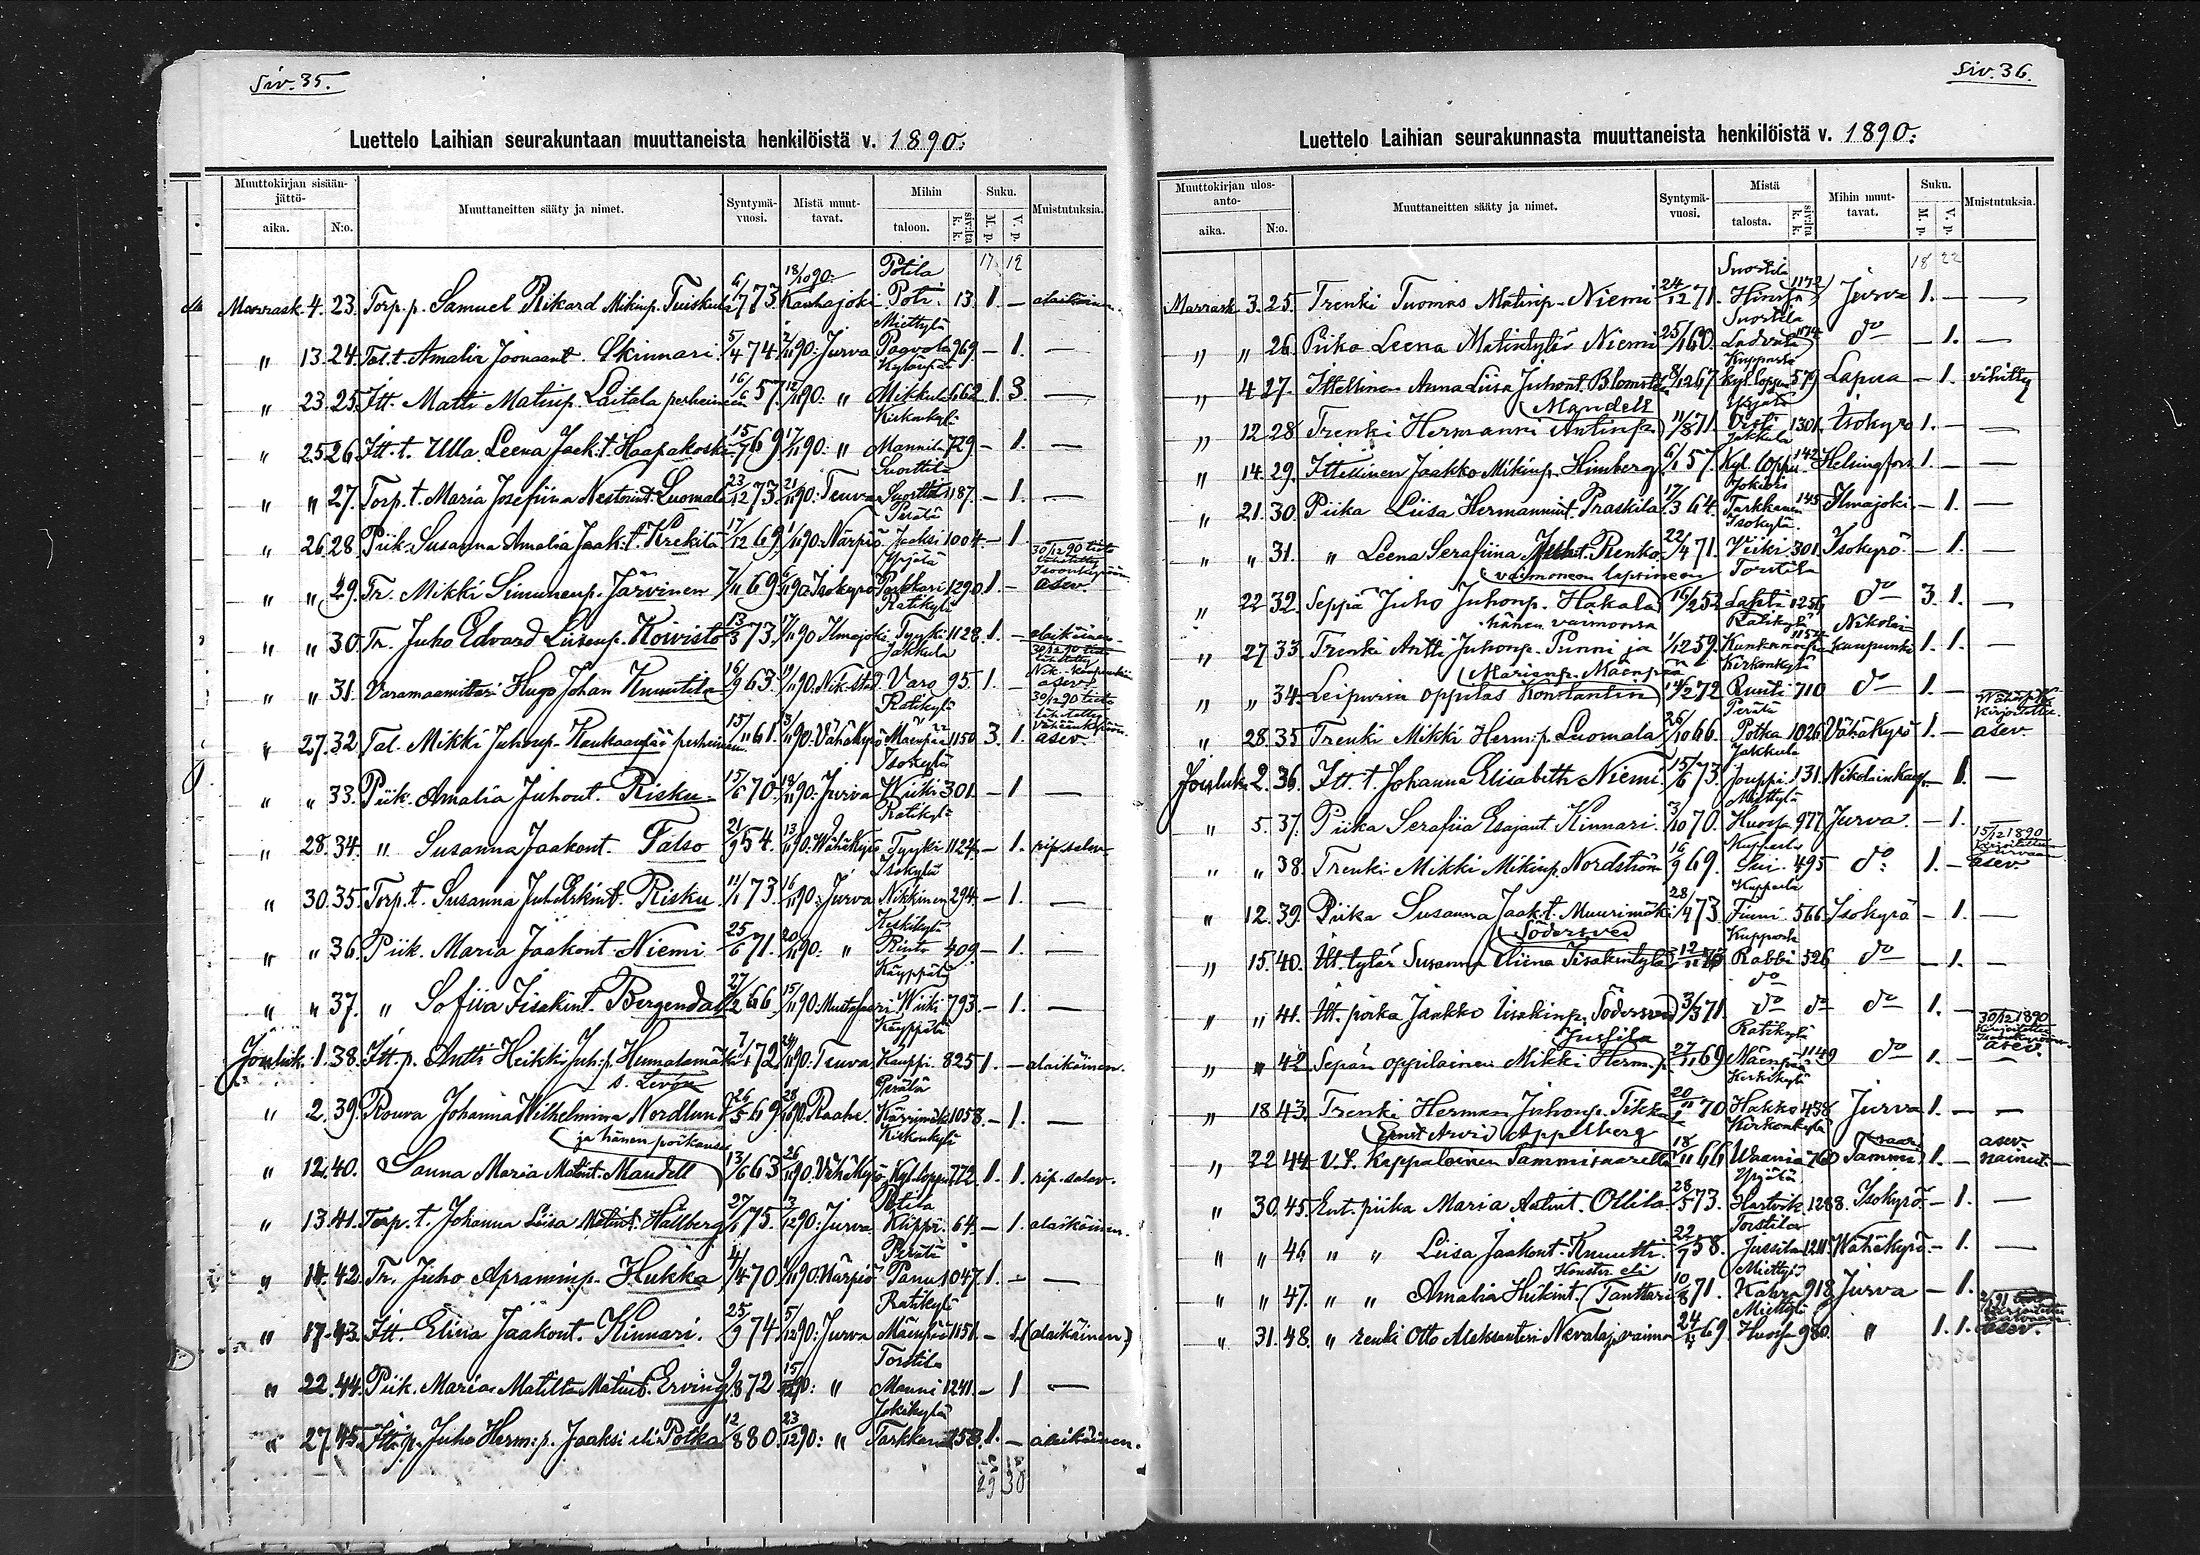 Siv. 35.
Luettelo Laihian seurakuntaan muuttaneista henkilöistä v. 1890.
Muuttokirjan sisäänjättö- aika. N:o. Muuttaneitten sääty ja nimet. Syntymävuosi. Mistä muuttavat. Mihin taloon. siv:lta k. k. Suku. M. p. V. p. Muistutuksia.
17 12
Potila
Marrask. 4. 23. Torp. p. Samuel Rikard Mikinp. Tuiskula 6/7 73. 18/10 90. Kauhajoki Poti 13. 1. — alaikäinen
Miettylä
" 13. 24. Tal. t. Amalia Joonaant. Skinnari 5/4 74 90. Jurva 969 — 1. —
" 23. 25. Itt. Matti Matinp. Laitala perheineen 16/6 57. 12/11 90. " Mikkula 662 1. 3. —
Kirkonkylä
" 25. 26. Itt. t. Ulla Leena Jaak.t. Haapakoski 15/7 69 17/11 90. " Mannila 729 — 1. —
Suortila
" " 27. Torp. t. Maria Josefiina Nestorint. Luomala 23/12 73. 21/11 90. Teuva Suortila 1187. — 1. —
Perälä
" 26. 28. Piik. Susanna Amalia Jaak.t. Krekilä 17/12 69. 1/11 90. Närpiö Jaaksi 1004. — 1. —
Yrjälä
" " 29. Tr. Mikki Simunenp. Järvinen 7/11 69 6/11 90. Isokyrö Pakkari 1290. 1. — 30/12 90 asev.
Ratikylä
" " 30. Tr. Juho Edvard Liisenp. Koivisto 13/3 73. 17/11 90 Ilmajoki Tyyki 1128. 1. — alaikäinen
Jakkula
" " 31. Varamaamittari Hugo Johan Knuutila 16/9 63. 19/11 90. Nik.stad Varo 95. 1. — 30/12 90 asev.
Ratikylä
" 27. 32. Tal. Mikki Juhonp. Kaukaanpää perheineen 15/11 61. 3/11 90. Vähäkyrö Mäenpää 1150 3. 1. 30/12 90 asev.
Isokylä
" " 33. Piik. Amalia Juhont. Risku 15/6 70. 90. Jurva Wiiki 301. — 1 —
Ratikylä
" 28. 34. " Susanna Jaakont. Falso 21/9 54. 13/11 90. Wähäkyrö Tyyki 1124. — 1. rip. salav.
Isokylä
" 30. 35. Torp. t. Susanna Juh.Erkint. Risku 11/1 73. 16/11 90. Jurva Nikkinen 294. — 1. —
Keskikylä
" " 36. Piik. Maria Jaakont. Niemi 25/6 71. 20/11 90. " Rinto 409. — 1. —
Käyppälä
" " 37. " Sofiia Iisakint. Bergendal 27/2 66. 15/11 90. Mustasaari Wiiki 793. — 1. —
Käyppälä
Jouluk. 1. 38. Itt. p. Antti Heikki Juh.p. Humalamäki 7/1 72. 90. Teuva Kauppi 825 1. — alaikäinen.
s. Levón Perälä
" 2. 39. Rouva Johanna Wilhelmina Nordlund 26/5 69 28/10 90. Raahe. Kärrimäki 1058. — 1. —
ja hänen poikansa Kirkonkylä
" 12. 40. Sanna Maria Matint. Mandell 13/6 63 26/11 90. Vähäkyrö Kyl.loppu 772. 1. 1. rip. salav.
Potila
" 13. 41. Torp. t. Johanna Liisa Matint. Hallberg 27/1 75. 3/12 90. Jurva Kiippi. 64. — 1. alaikäinen.
Perälä
" 14. 42. Tr. Juho Apraminp. Hukka 4/4 70. 1/11 90. Närpiö Panu 1047. 1. — —
Ratikylä
" 17. 43. Itt. Elina Jaakont. Kinnari. 25/9 74 5/12 90. Jurva Mäenpää 1151. — 1. (alaikäinen)
Torstila
" 22. 44. Piik. Maria Matilta Matint. Erving 9/8 72 15/12 90. " Manni 1241. — 1 —
Jokikylä
" 27. 45. Itt. p. Juho Herm:p. Jaaksi eli Potka 12/8 80. 23/12 90. " Tarkkanen 153. 1. — alaikäinen.
29 30
Siv. 36.
Luettelo Laihian seurakunnasta muuttaneista henkilöistä v. 1890.
Muuttokirjan ulosanto- aika. N:o. Muuttaneitten sääty ja nimet. Syntymävuosi. Mistä talosta. siv:lta k. k. Mihin muuttavat. Suku. M. p. V. p. Muistutuksia.
18 22
Suortila
Marrask. 3. 25. Trenki Tuomas Matinp. Niemi 24/12 71. 1172 Jurva 1. — —
Suortila
" " 26. Piika Leena Matintytär Niemi 25/1 60. 1174 do — 1. —
Kupparla
" 4 27. Itsellinen Anna Liisa Juhont. Blomster 8/12 67 Kyl.loppu 579 Lapua — 1. vihitty
Mandell Yrjälä
" 12 28. Trenki Hermanni Antinp. 11/8 71. Orsti 1301. Isokyrö 1. — —
Jakkula
" 14. 29. Itsellinen Jaakko Mikinp. Himberg 6/1 57. Kyl. loppu 142 Helsingfors 1. — —
" 21. 30. Piika Liisa Hermannint. Praskila 17/3 64. Tarkkanen 145 Ilmajoki — 1. —
Isokylä
" " 31. " Leena Serafiina Juhont. Renko. 22/4 71. Viiki 301 Isokyrö — 1. —
vaimoneen lapsineen Torstila
" 22 32. Seppä Juho Juhonp. Hakala 16/2 52 Lahti 1256 do 3. 1. —
hänen vaimonsa Ratikylä Nikolain
" 27 33. Trenki Antti Juhonp. Punni ja 1/12 59. 1154 kaupunki 1. 1. —
Marianp. Mäenpää Kirkonkylä
" " 34. Leipurin oppilas Konstantin 14/2 72 Ruuti 710 do 1. —
Perälä
" 28. 35 Trenki Mikki Herm:p. Luomala 26/10 66. Potka 1026. Vähäkyrö 1. — asev.
Jakkula
Jouluk. 2. 36. Itt. t. Johanna Elisabeth Niemi. 15/6 73. Jouppi 131. Nikolainkaup. — 1. —
Miettylä
" 5. 37. Piika Serafiia Esajant. Kinnari. 3/10 70. Huosa 977 Jurva. — 1.
Kupparla
" " 38. Trenki Mikki Mikinp. Nordström 16/9 69. 495 do. 1. — 15/12 1890 asev.
Kupparla
" 12. 39. Piika Susanna Jaak.t. Muurimäki 28/4 73. Finni 566. Isokyrö — 1. —
Södersved Kupparla
" 15. 40. Itt. tytär Susanna Eliina Iisakintytär 12/11 Rabbi 526 do — 1. —
do
" " 41. Itt. poika Jaakko Iisakinp. Södersved 3/3 71. do do do 1. —
Jussila Ratikylä
" " 42 Sepän oppilainen Mikki Herm.p. 27/11 69 Mäenpää 1149 do 1. — 30/12 1890 asev.
Keskikylä
" 18 43. Trenki Herman Juhonp. Tikka 20/11 70 Hakko 438 Jurva 1. — —
Ernst Arvid Appelberg Kirkonkylä
" 22 44. V. t. Kappalainen Tammisaarella 18/11 66 Waania 760 Tammisaari 1. — asev. nainut.
Yrjälä
" 30. 45. Ent. piika Maria Antint. Ollila 28/5 73. Hartvik 1288. Isokyrö — 1. —
Torstila
" " 46 " " Liisa Jaakont. Knuutti. 22/7 58. Jussila 1211. Wähäkyrö. — 1. —
eli Miettylä
" " 47. " " Amalia Heikint. (Tanttari 10/8 71. Kahra 918 Jurva — 1.
Miettylä
" 31. 48. " renki Otto Aleksanteri Nevala ja vaimo 24/4 69. Huosa 980. " 1. 1. asev.